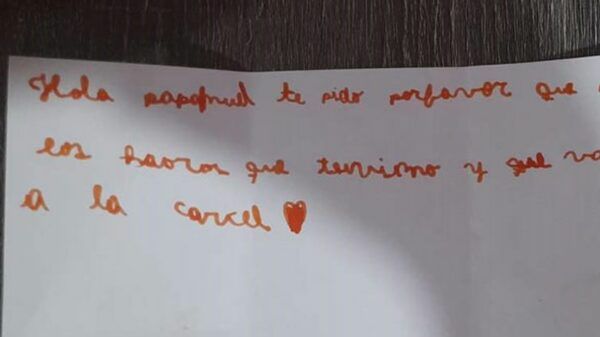 Hola papanuel te pido porfavor que
los haoros que tenismo y que va
a la carcel